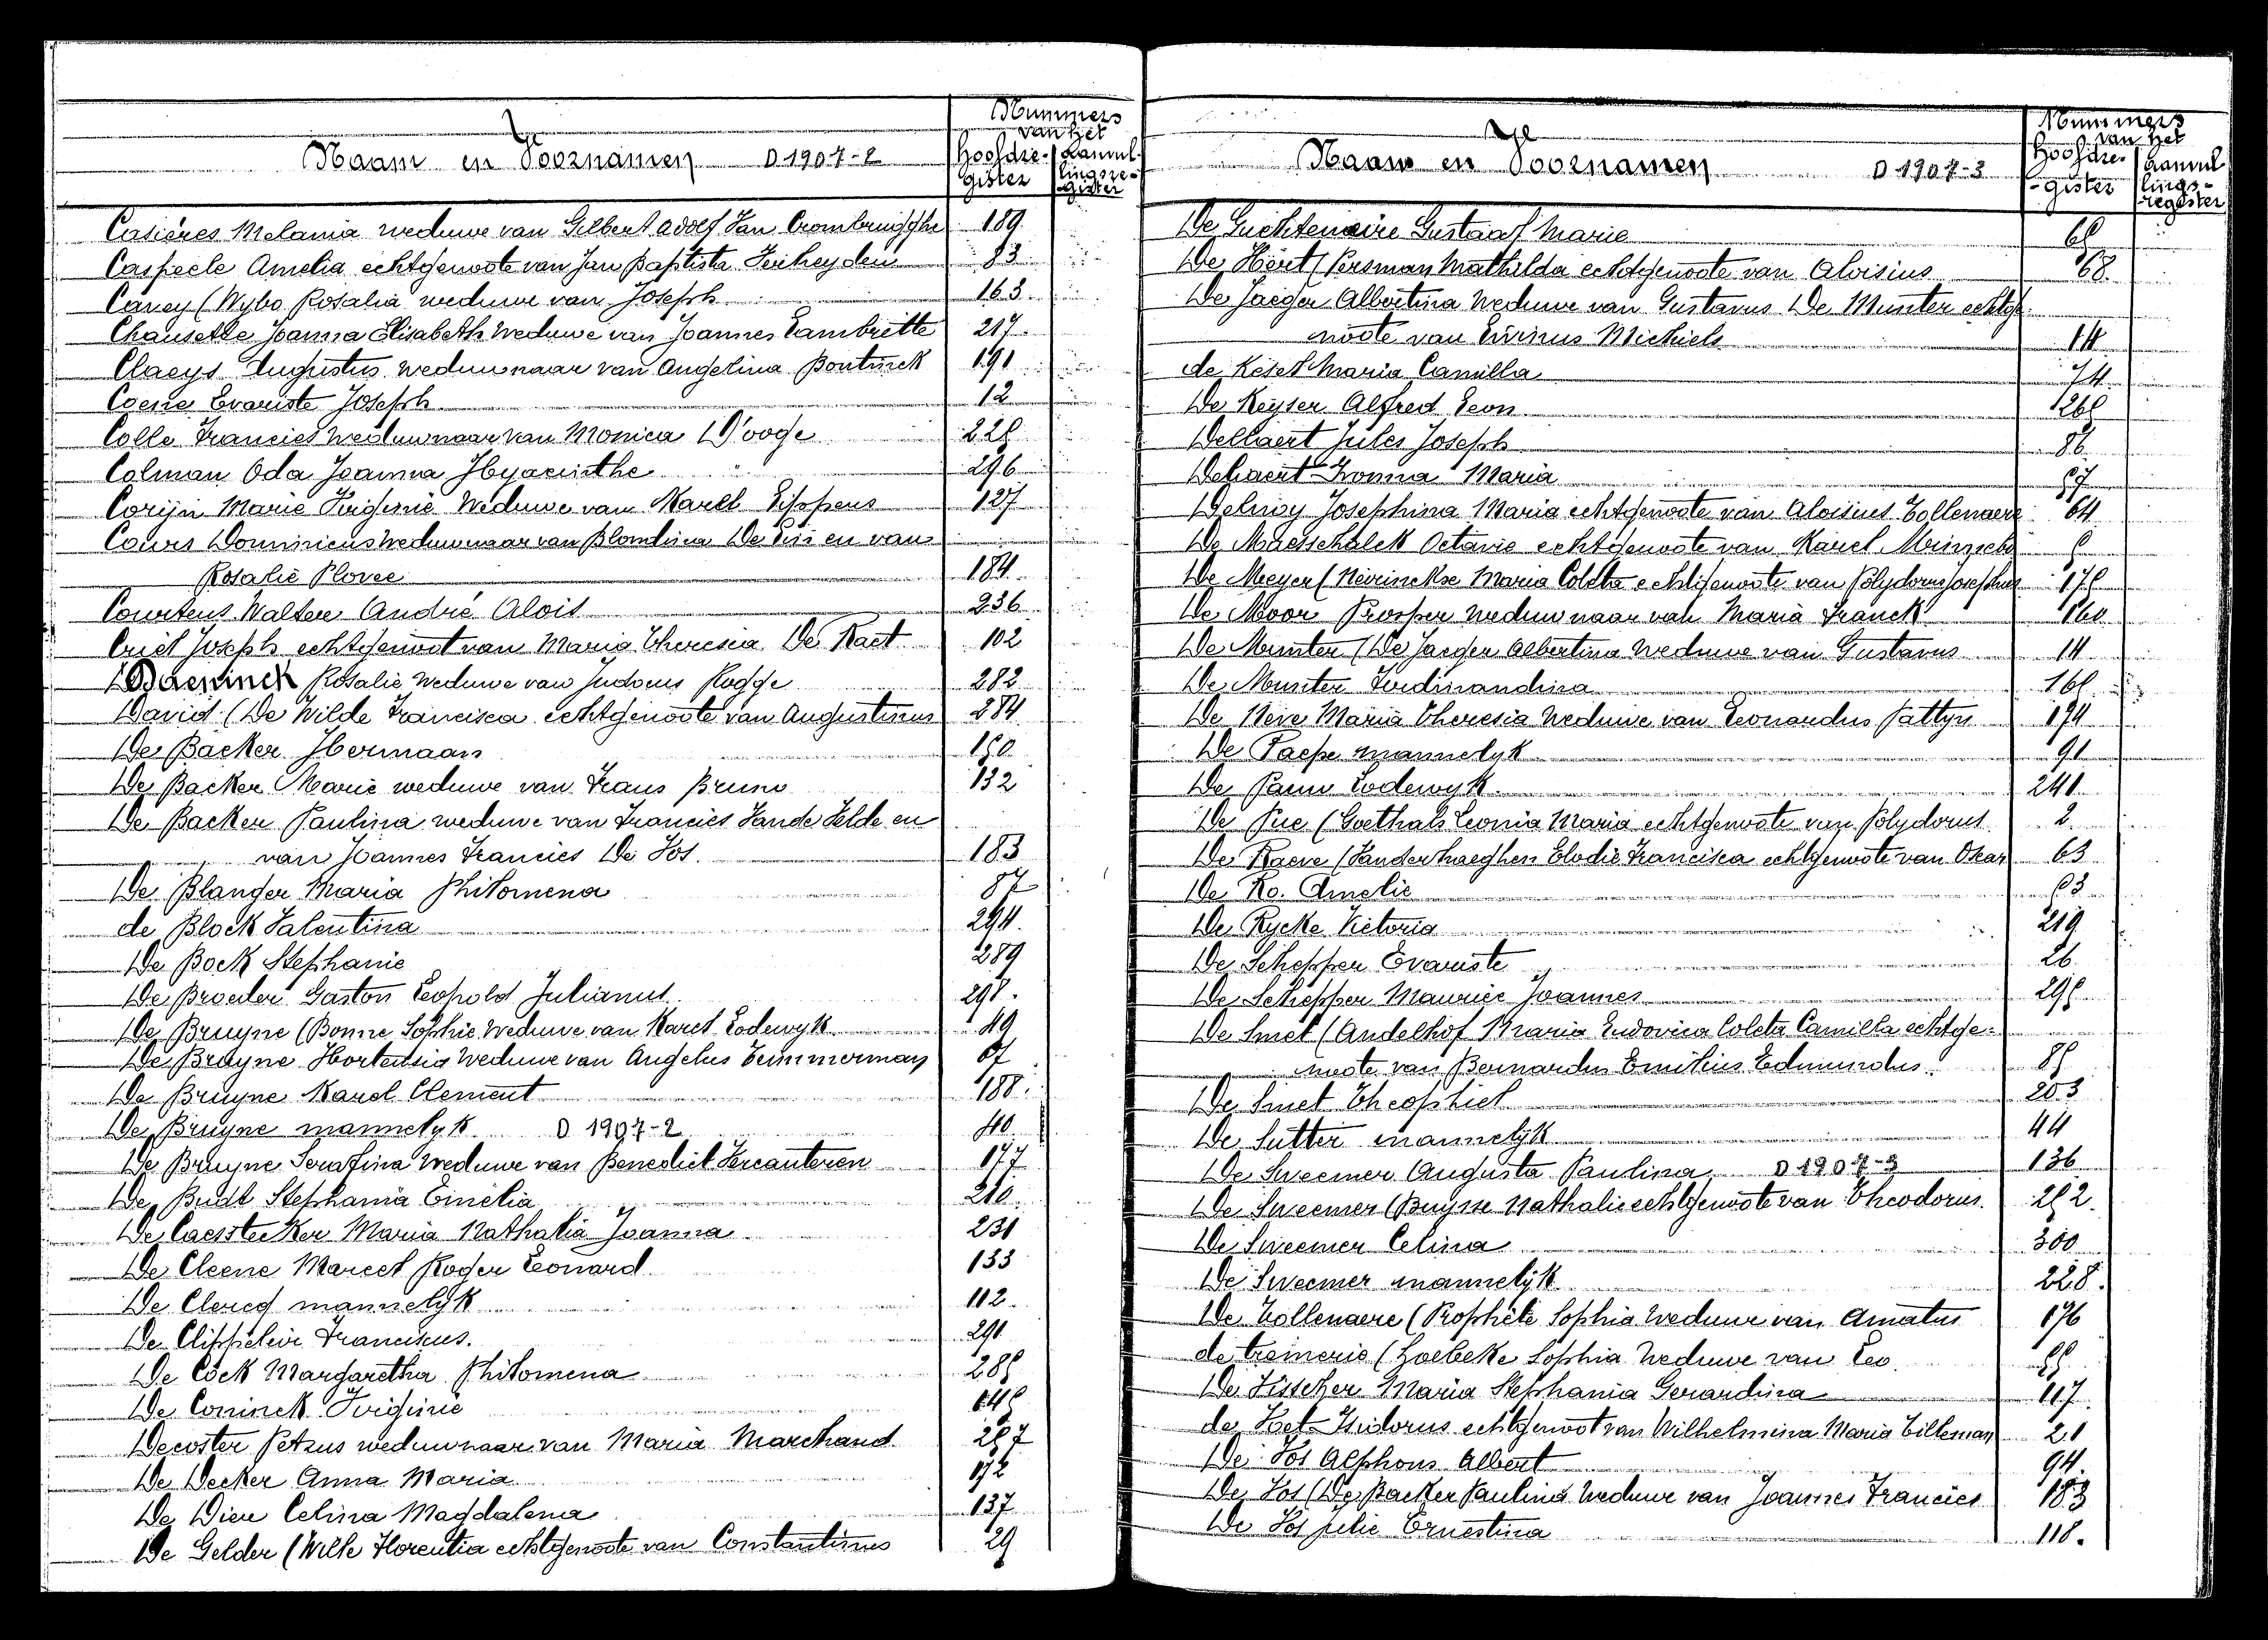 Nummers
van het
Naam en Voornamen D 1907-2
Hoofdre- Aanvul-
gister lingsre-
gister
Casières Melania weduwe van Gilbert Adolf Van 189
Caspeele Amelia echtgenoote van Jan Baptista Verheyden 83
Caney (Wybo Rosalia weduwe van Joseph 163
Chausette Joanna Elisabeth Weduwe van Joannes Lambrette 217
Claeys Augustus weduwnaar van Angelina Bontinck 191
Coene Evariste Joseph 12
Colle Francies Weduwnaar van Monica D'Hooge
Colman Oda Joanna Hyacinthe 296
Corijn Marie Eugenie Weduwe van Karel Schepens 127
Cours Dominicus Weduwnaar van Blondina De en van
Rosalie Plovee 184
Courtens Walter André Alois 236
Criel Joseph echtgenoot van Maria Theresia De Raet 102
Daeninck Rosalie Weduwe van Judocus Rogge 282
David (De Wilde Francisca echtgenoote van Augustinus 284
De Backer Hermaan
De Backer Marie weduwe van Frans Bruno 132
De Backer Paulina weduwe van Francies Vande Velde en
van Joannes Francies De Vos. 183
De Blanger Maria Philomena 87
de Block Valentina 294
De Bock Stephanie 289
De Broeder Gaston Leopold Julianus
De Bruyne (Bonne Sophie Weduwe van Karel Lodewyk 49
De Bruyne Hortensia Weduwe van Angelus Temmerman 67
De Bruyne Karel Clement 188
De Bruyne mannelyk D 1907-2 40
De Bruyne Serafina Weduwe van Benedict Vercauteren 177
De Budt Stephania Emelia 210
De Caesstecker Maria Nathalia Joanna 231
De Cleene Marcel Roger Leonard 133
De Clercq mannelyk 112
De Clippeleir Franciscus. 291
De Cock Margaretha Philomena
De Coninck Virginie
Decoster Petrus weduwnaar van Maria Marchand
De Decker Anna Maria 172
De Dier Celina Magdalena 137
De Gelder (Wille Florentia echtgenoote van Constantinus 29
Nummers
van het
Naam en Voornamen D 1907-3
Hoofdre- Aanvul
gister lings-
register
De Guchtenaire Gustaaf Marie
De Hert (Persman Mathilda echtgenoote van Aloisius 68
De Jaeger Albertina Weduwe van Gustavus De Munter echtge-
noote van Livinus Michiels 14
de Keser Maria Camilla 74
De Keyser Alfred Leon
Dellaert Jules Joseph 86
Dellaert Ivonna Maria 57
Delnoy Josephina Maria echtgenoote van Aloisius Tollenaere 64
De Maesschalck Octavie echtgenoote van Karel
De Meyer (Neirinckx Maria Coleta echtgenoote van Polydorus Josephus
De Moor Prosper Weduwnaar van Maria Franck 160
De Munter (De Jaeger Albertina Weduwe van Gustavus 14
De Munter Ferdinandina
De Neve Maria Theresia Weduwe van Leonardus Pattyn 174
De Paepe mannelyk 91
De Pauw Lodewyk 241
De Pue (Goethals Leonia Maria echtgenoote van Polydorus 2
De Raeve (Vanderhaeghen Elodie Francisca echtgenoote van Oscar 63
De Ro. Amelie
De Rycke Victoria 219
De Schepper Evariste 26
De Schepper Maurice Joannes
De Smet (Andelhof Maria Ludovica Coleta Camilla echtge-
noote van Bernardus Emilius Edmundus
De Smet Theophiel 203
De Sutter mannelyk 44
De Sweemer Augusta Paulina D 1907-3 136
De Sweemer (Buysse Nathalie echtgenoote van Theodorus
De Sweemer Celina 300
De Sweemer mannelyk 228
De Tollenaere (Prophète Sophia Weduwe van Amatus 176
de Cremerie (Loebeke Sophia Weduwe van Leo
De Visscher Maria Stephania Gerardina 117
de Voet Isidorus echtgenoot van Wilhelmina Maria Tilleman 21
De Vos Alphons Albert 94
De Vos (De Backer Paulina Weduwe van Joannes Francies 183
De Vos Julie Ernestina 118